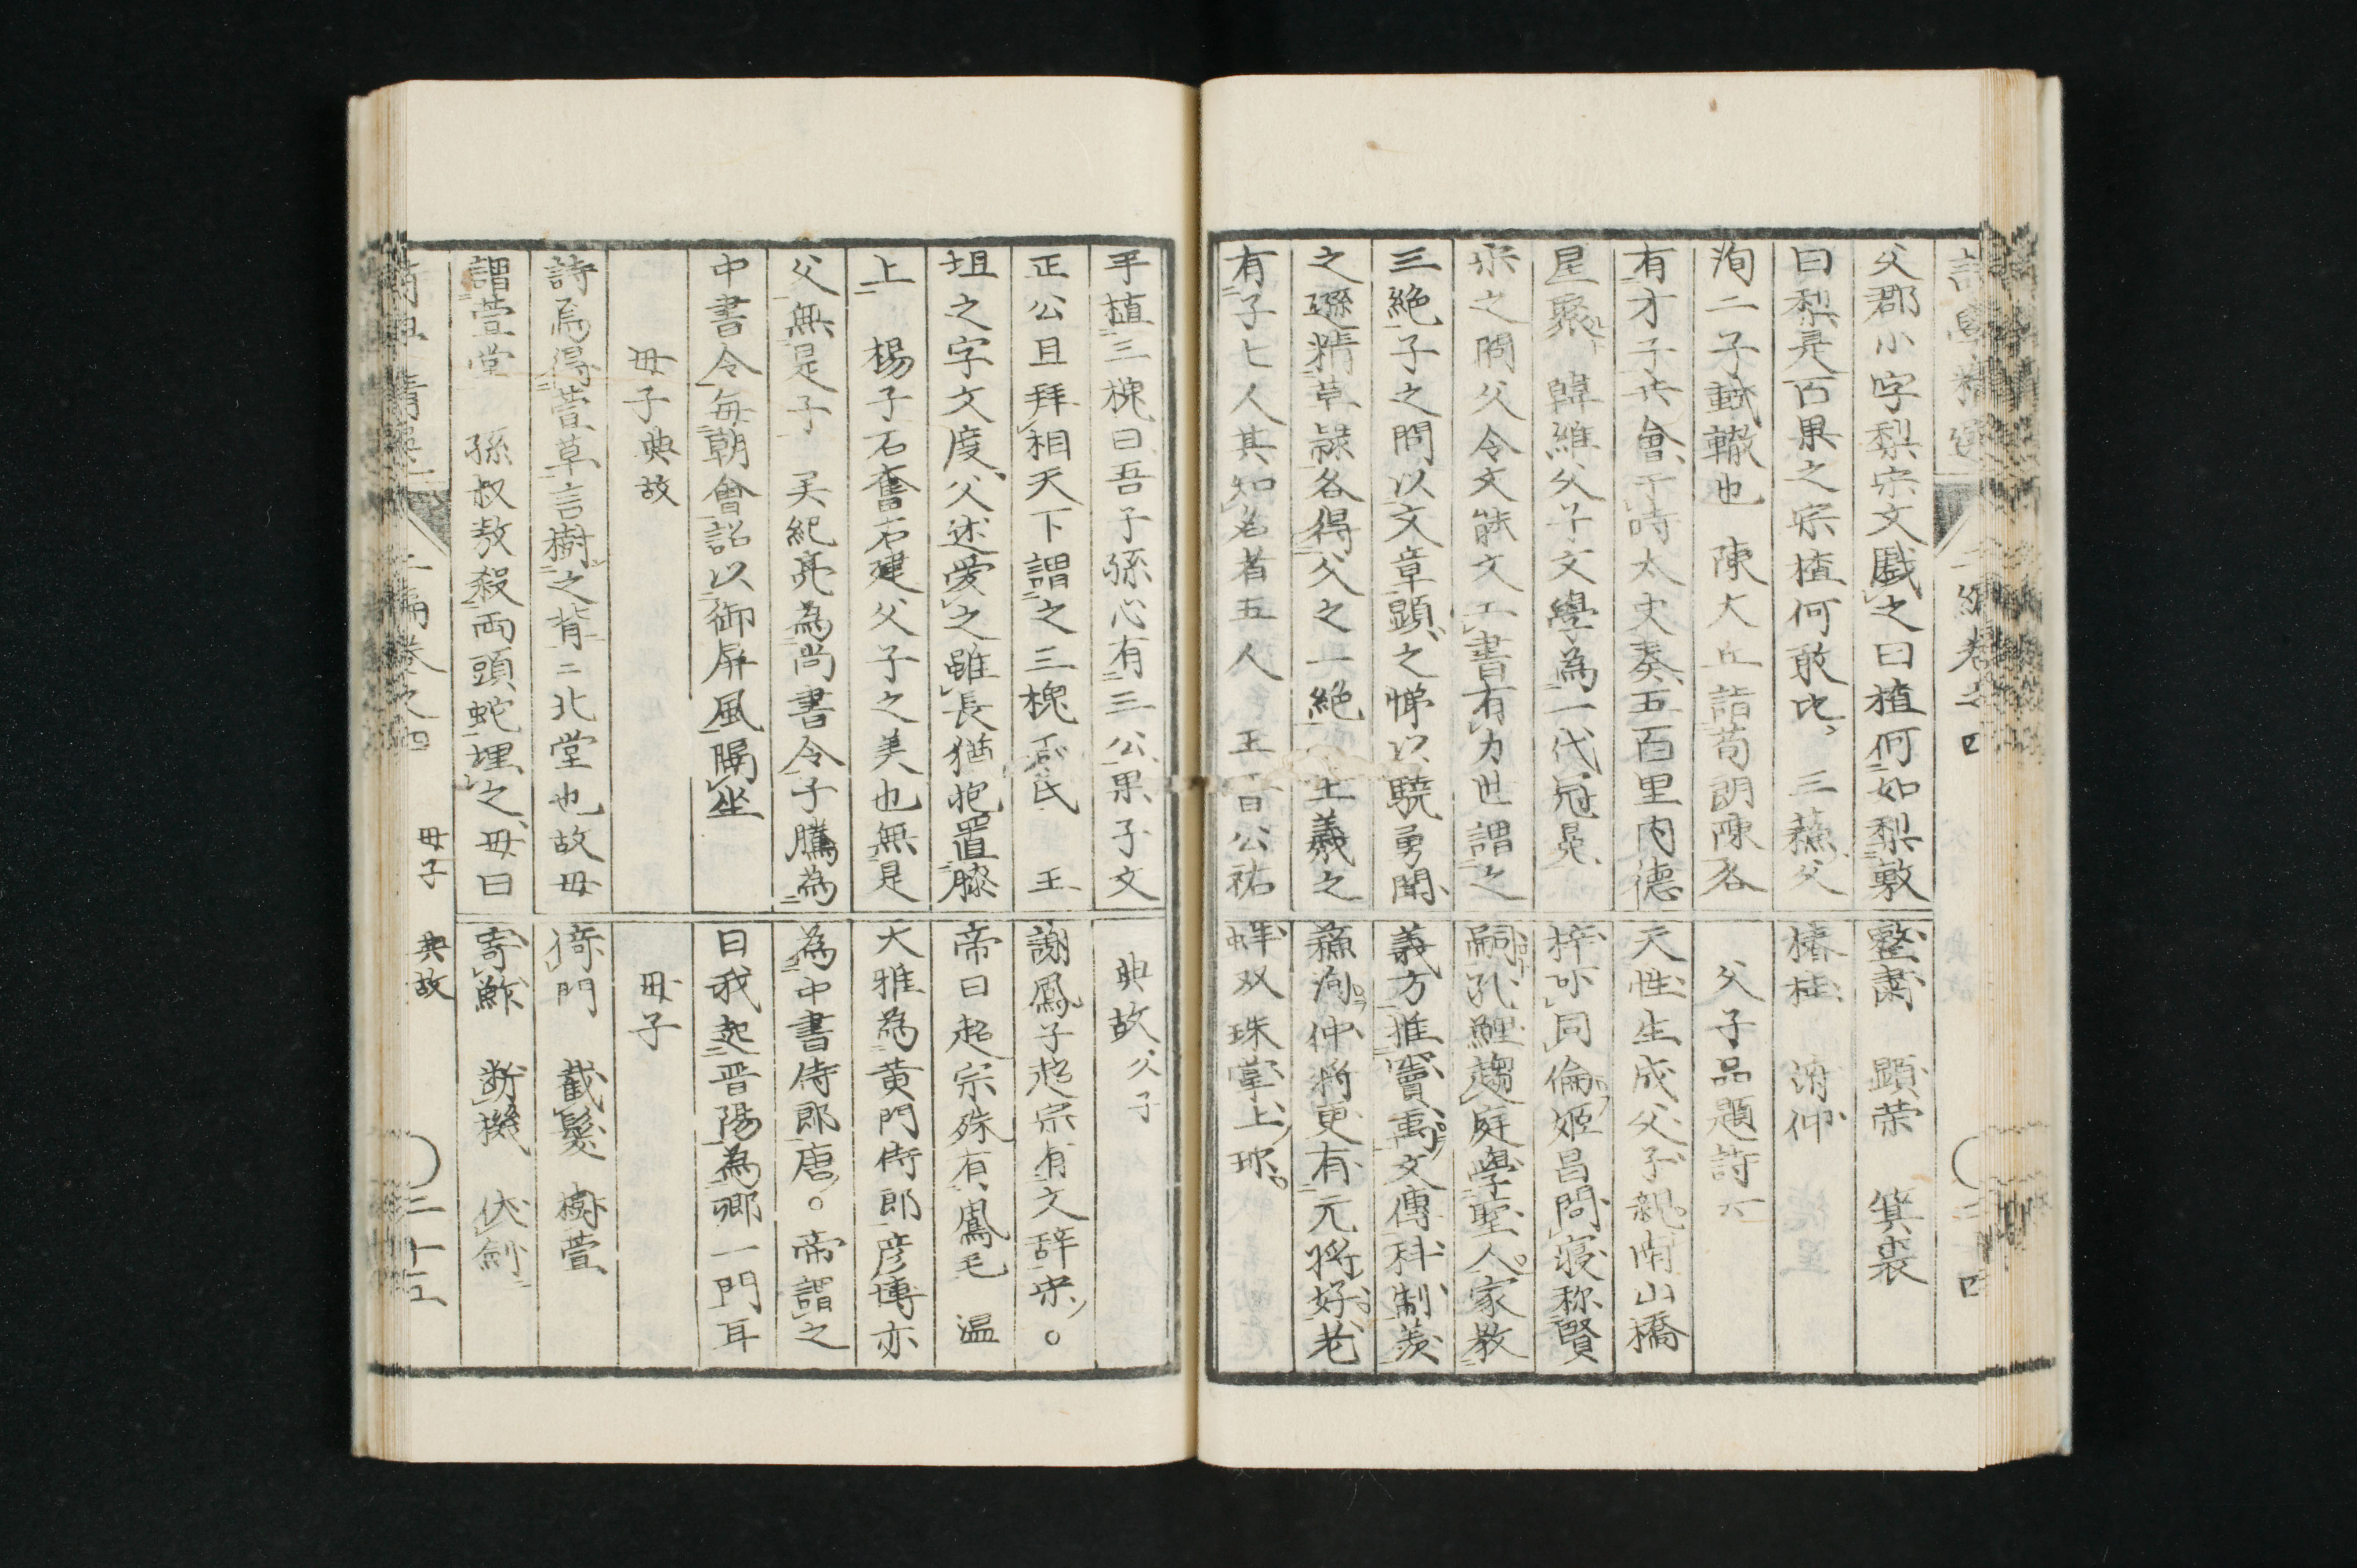 父郡小字梨宗文戯之曰樝何如梨敷
曰梨是百果之宗樝何敢比 三蘇父
洵二子軾轍也 陳大丘詣荀朗陵各
有才子共會于時太史奏五百里内德
星聚 韓維父子文學為一代冠冕
宗之問父令文能文工書有力世謂之
三絶子之問以文章顕之悌以驍勇聞
之遜精草隷各得父之一絶 王羲之
有子七人其知名者五人 王晋公祐
整肅 顕荣 箕裘
椿桂 俯仰
父子品題詩六
天性生成父子親南山橋
梓亦同倫姬昌問寝称賢
嗣孔鯉趨庭學聖人家教
義方推竇禹文傳科制羨
蘇洵仲将更有元将好老
蚌双珠掌上珎
手植三槐曰吾子孫必有三公果子文
正公旦拜相天下謂之三槐王氏 王
坦之字文度父述愛之雖長猶抱置膝
上 楊子石奮石建父子之美也無是
父無是子 吴紀亮為尚書令子騰為
中書令毎朝會詔以御屏風隔坐
母子典故
詩焉得萱草言樹之背二北堂也故母
謂萱堂 孫叔敖殺両頭蛇埋之母曰
典故父子
謝鳳子超宗有文辞宋
帝曰超宗殊有鳳毛 温
大雅為黄門侍郎彦博亦
為中書侍郎唐帝謂之
曰我起晋陽為卿一門耳
母子
倚門 截髮 樹萱
寄鮓 断機 伏劍
母子 典故
二編巻之四
三十五